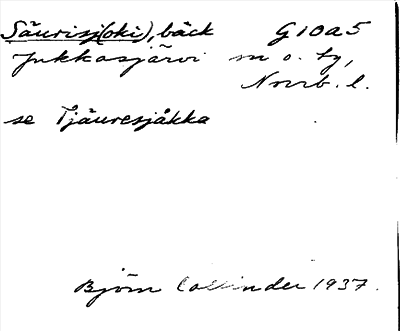 Säurisj(oki), bäck G10a5
Jukkasjärvi m o. ty,
Norrb. l.
se Tjäuresjåkka
Björn Collinder 1937.